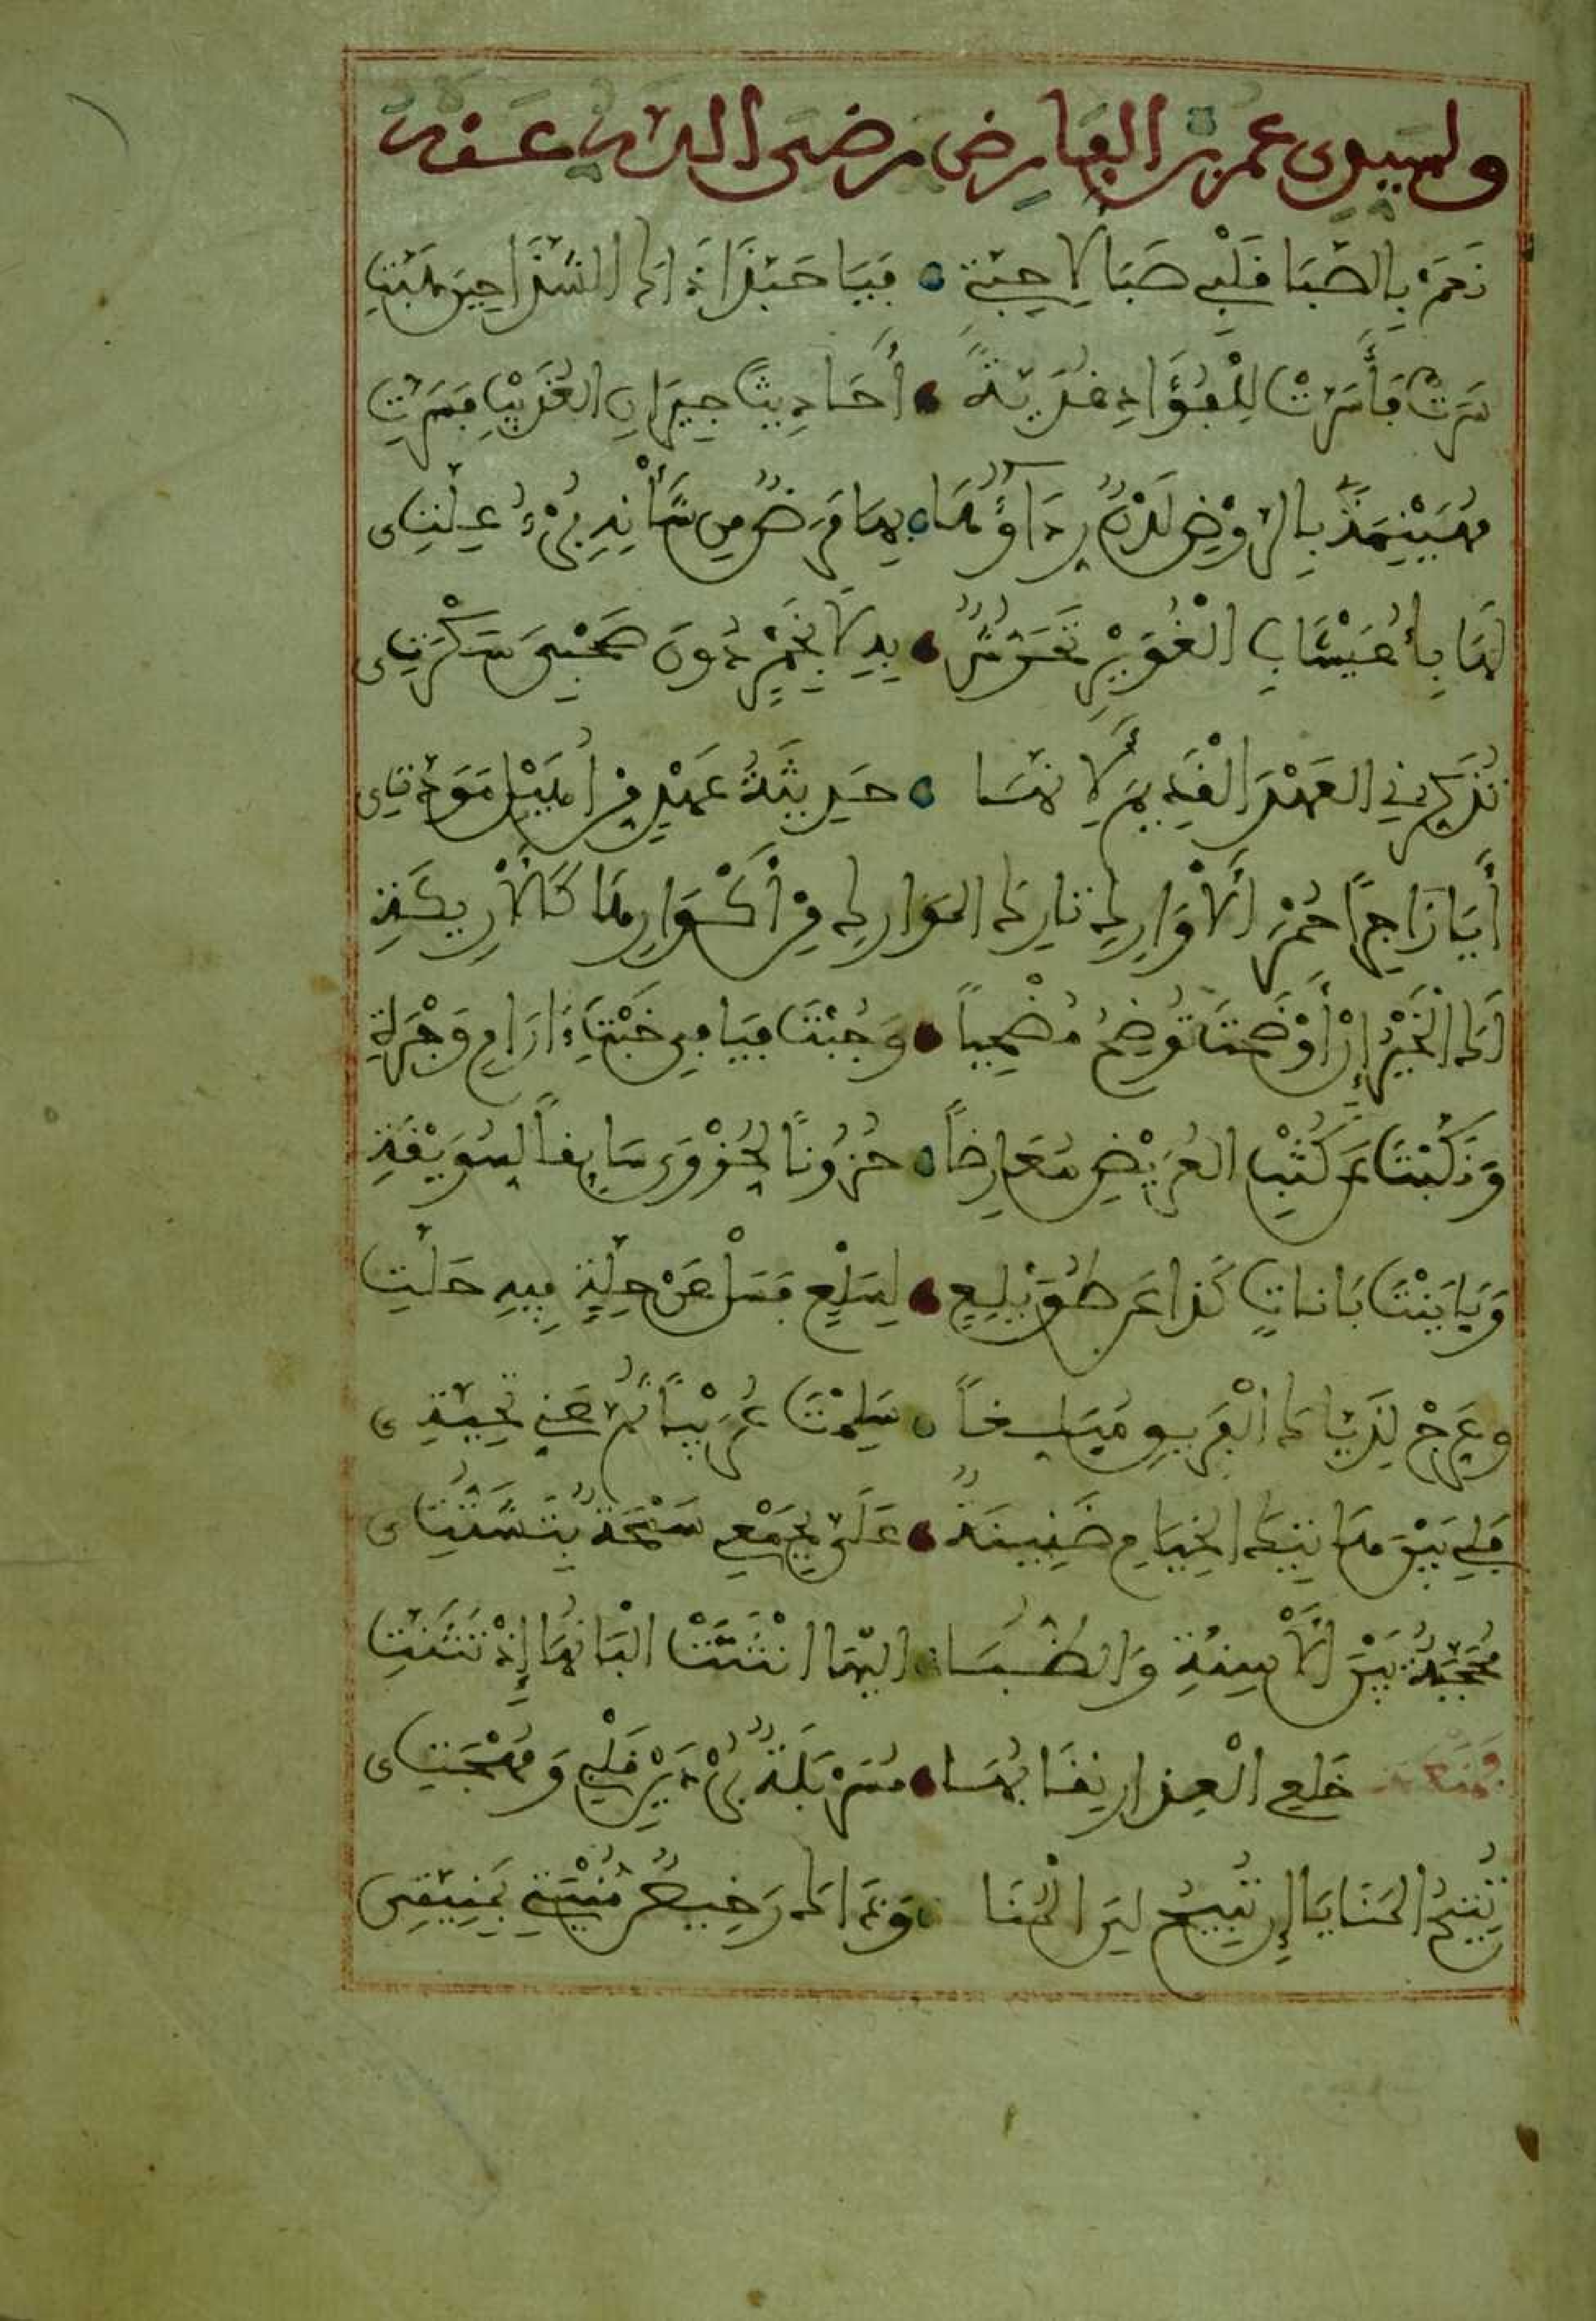 ولسيدي عمر بن الفارض رضي الله عنه
نَعَمْ بِالصَّبَا قَلْبِي صَبَا لِأَحِبَّتِي فَيَا حَبَّذَا ذَاكَ الشَّذَا حِينَ هَبَّتِ
سَرَتْ فَأَسَرَّتْ لِلْفُؤَادِ غُدَيَّةً أَحَادِيثَ جِيرَانِ العُذَيْبِ فَسَرَّتِ
مُهَيْنِمَةٌ بِالرَّوْضِ لَدْنٌ رِدَاؤُهَا بِهَا مَرَضٌ مِن شَأْنِهِ بُرْءُ عِلَّتِي
لَهَا بِأُعَيْشَابِ الْغُوَيْرِ تَحَرُّشٌ بِهِ لَا بِخَمْرٍ دُونَ صَحْبِيَ سَكْرَتِي
تُذَكِّرُنِي العَهْدَ الْقَدِيمَ لِأَنَّهَا حَدِيثَةُ عَهْدٍ مِنْ أُهَيْلِ مَوَدَّتِي
أَيَا زَاجِرًا حُمْرَ الْأَوَارِكِ تَارِكَ الْمَوَارِكِ مِنْ أَكْوَارِهَا كَالْأَرِيكَةِ
لَكَ الْخَيْرُ إِنْ أَوْضَحْتَ تُوضِحَ مُضْحِيًا وَجُبْتَ فَيَافِي خَبْتِ ءَارَامِ وَجْرَةِ
وَنَكَّبْتَ عَن كُثْبِ العُرَيْضِ مُعَارِضًا حُزُونًا لِحُزْوَى سَايِقًا لِسُوَيْقَةِ
وَبَايَنْتَ بَانَاتٍ كَذَا عَن طُوَيْلِعٍ لِسَلْعٍ فَسَلْ عَنْ حِلَّةٍ فِيهِ حَلَّتِ
وعَرِّجْ بِذَيَّاكَ الْفَرِيقِ مُبَلِّغًا سَلِمْتَ عُرَيْبًا ثَمَّ عَنِّي تَحِيَّتِي
فَلِي بَيْنَ هَاتِيكَ الخِيَامِ ضَنِينَةٌ عَلَيَّ بِجَمْعِي سَمْحَةٌ بِتَشَتُّتِي
مُحَجَّبَةٌ بَيْنَ الْأَسِنَّةِ وَالظُّبَا إليها انْثَنَتْ أَلْبَابُهَا إِذْ تَثَنَّتِ
خَلِيعِ الْعِذَارِ نِقَابُهَا مُسَرْبَلَةٌ بُرْدَيْنِ قَلْبِي وَمُهْجَتِي
تُتِيحُ المَنَايَا إِذْ تُبِيحُ لِيَ الْمُنَا وَذَاكَ رَخِيصٌ مُنْيَتِي بِمَنِيَّتِي